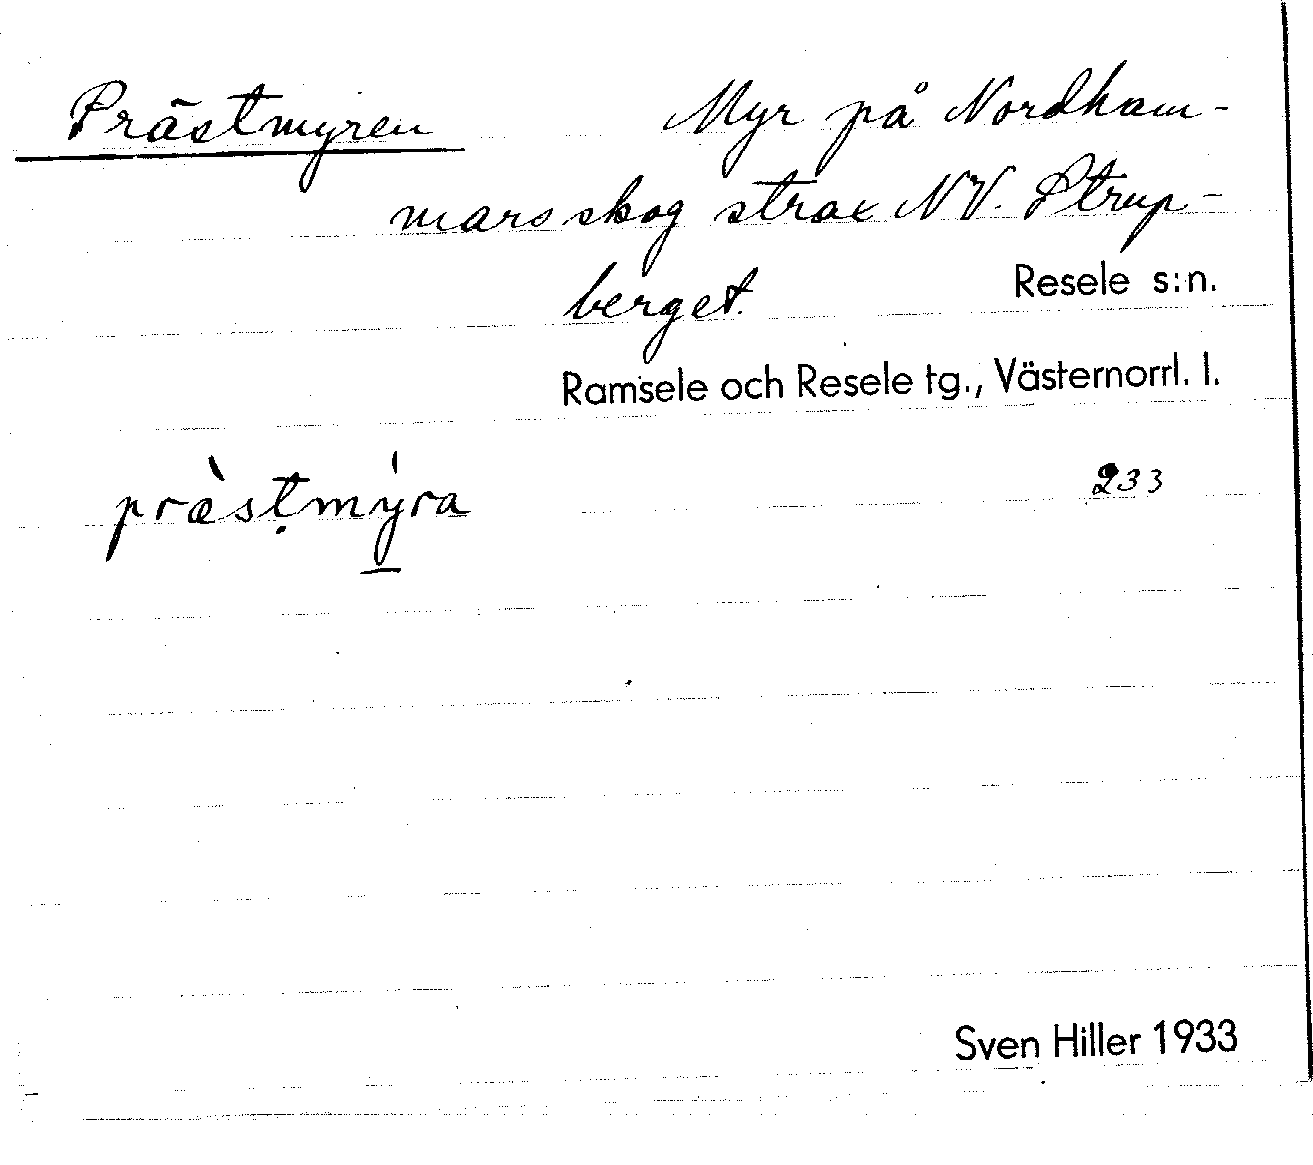 Prästmyren Myr på Nordham-
marsskog strax NV. Strup-
berget. Resele s:n.
Ramsele och Resele tg., Västernorrl. l.
præ̀stmýra 233
Sven Hiller 1933